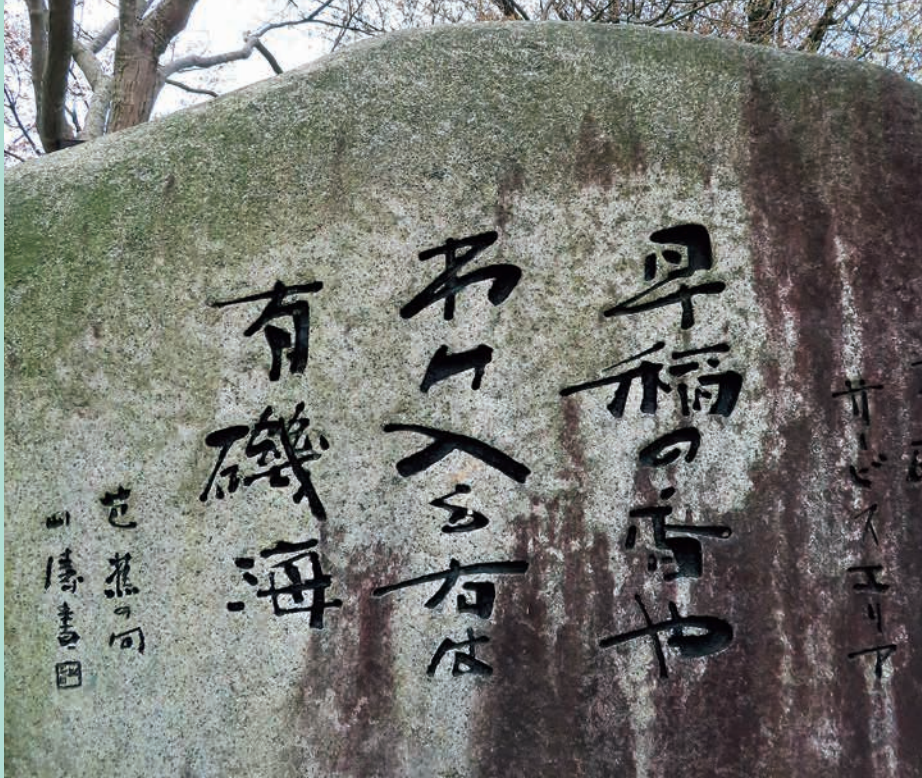 サービスエリア
早稲の香や
わけ入る右は
有磯海
芭蕉の句
山濤書